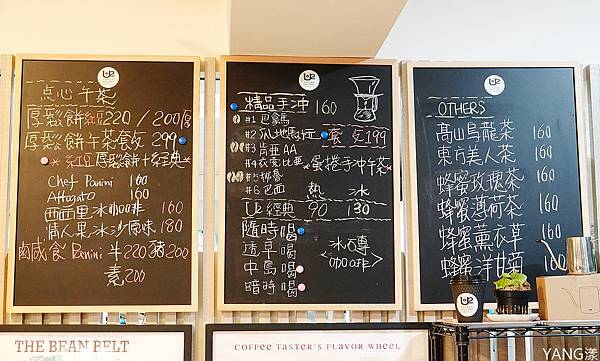 点心午茶
厚鬆餅紅豆220/200厚
厚鬆餅午茶套餐299
紅豆厚鬆餅+經典
Chef Panini 160
Affogato 160
西西里冰咖啡 160
情人果冰沙原味 130
鹹食 Panini 半220豬200
素200
精品手冲 160
#1 巴拿馬
#2 瓜地馬拉 套餐199
#3 肯亞AA
#4 衣索比亞 蛋捲手冲午茶
#5 秘魯
#6 巴西 熱 冰
U2 經典 90 130
隨時喝
透早喝
中島喝
暗時喝
冰磚
<咖啡>
OTHERS
髙山烏龍茶 160
東方美人茶 160
蜂蜜玫瑰茶 160
蜂蜜薄荷茶 160
蜂蜜薰衣草 160
蜂蜜洋甘菊 160
THE BEAN BELT
COFFEE TASTER'S FLAVOR WHEEL
YANG漾